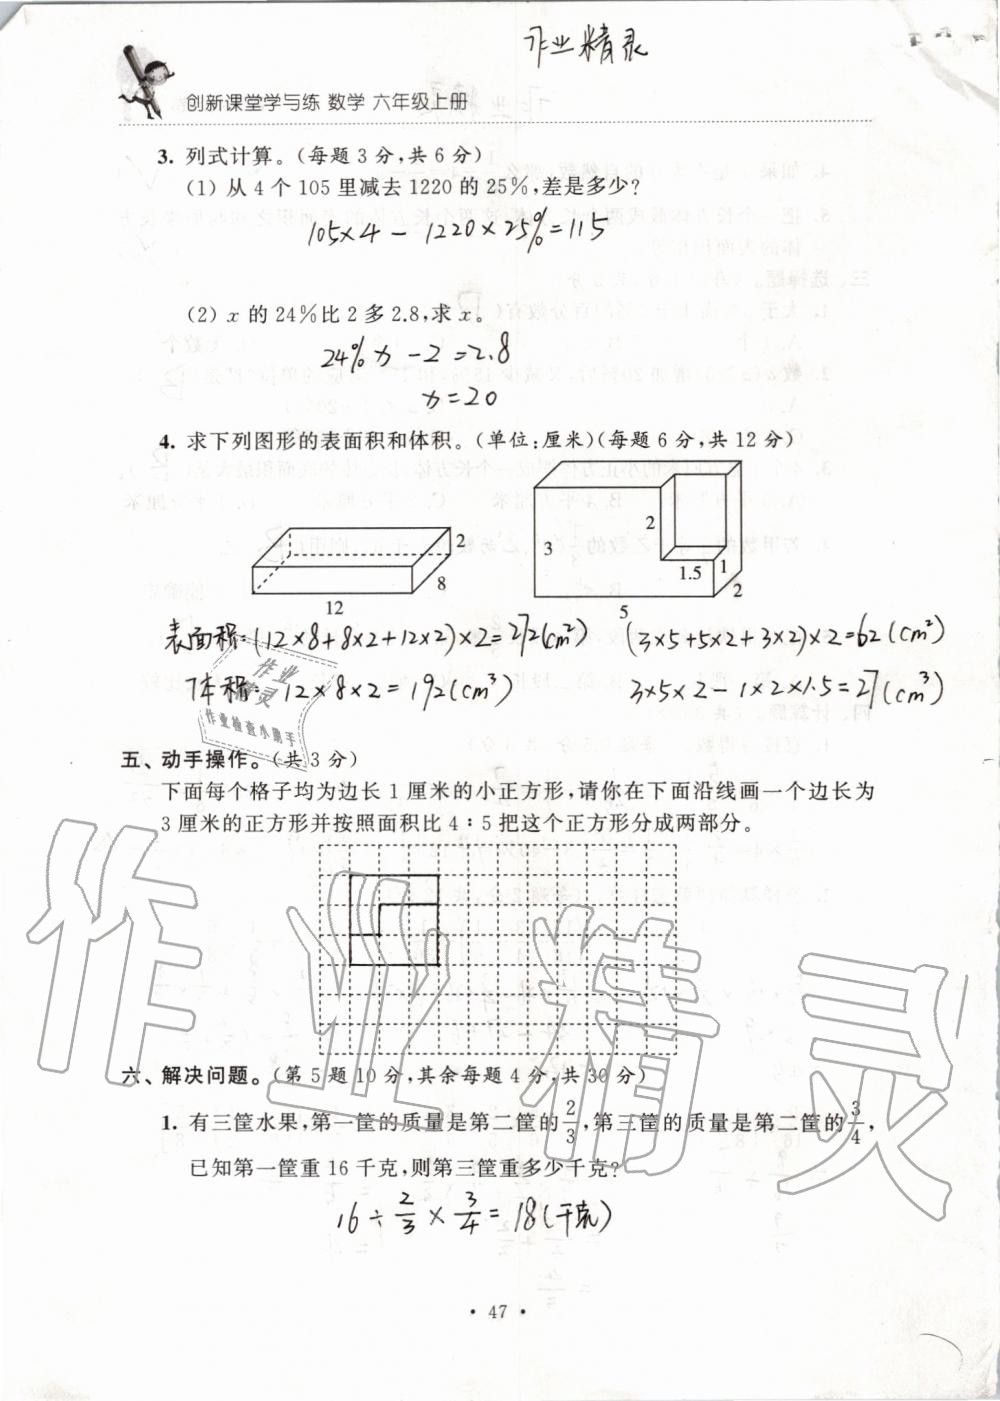 作业精灵
创新课堂学与练 数学 六年级上册
3. 列式计算。(每题3分,共6分)
(1) 从4个105里减去1220的25%,差是多少?
105×4-1220×25%=115
(2) x的24%比2多2.8,求x。
24%x-2=2.8
x=20
4. 求下列图形的表面积和体积。(单位:厘米)(每题6分,共12分)
2
8
12
3
2
1.5
1
2
5
表面积:(12×8+8×2+12×2)×2=272(cm²)
(3×5+5×2+3×2)×2=62(cm²)
体积:12×8×2=192(cm³)
3×5×2-1×2×1.5=27(cm³)
作业
精灵
作业检查小助手
五、动手操作。(共3分)
下面每个格子均为边长1厘米的小正方形,请你在下面沿线画一个边长为
3厘米的正方形并按照面积比4∶5把这个正方形分成两部分。
作业精灵
六、解决问题。(第5题10分,其余每题4分,共30分)
1. 有三筐水果,第一筐的质量是第二筐的2/3,第三筐的质量是第二筐的3/4,
已知第一筐重16千克,则第三筐重多少千克?
16÷2/3×3/4=18(千克)
• 47 •